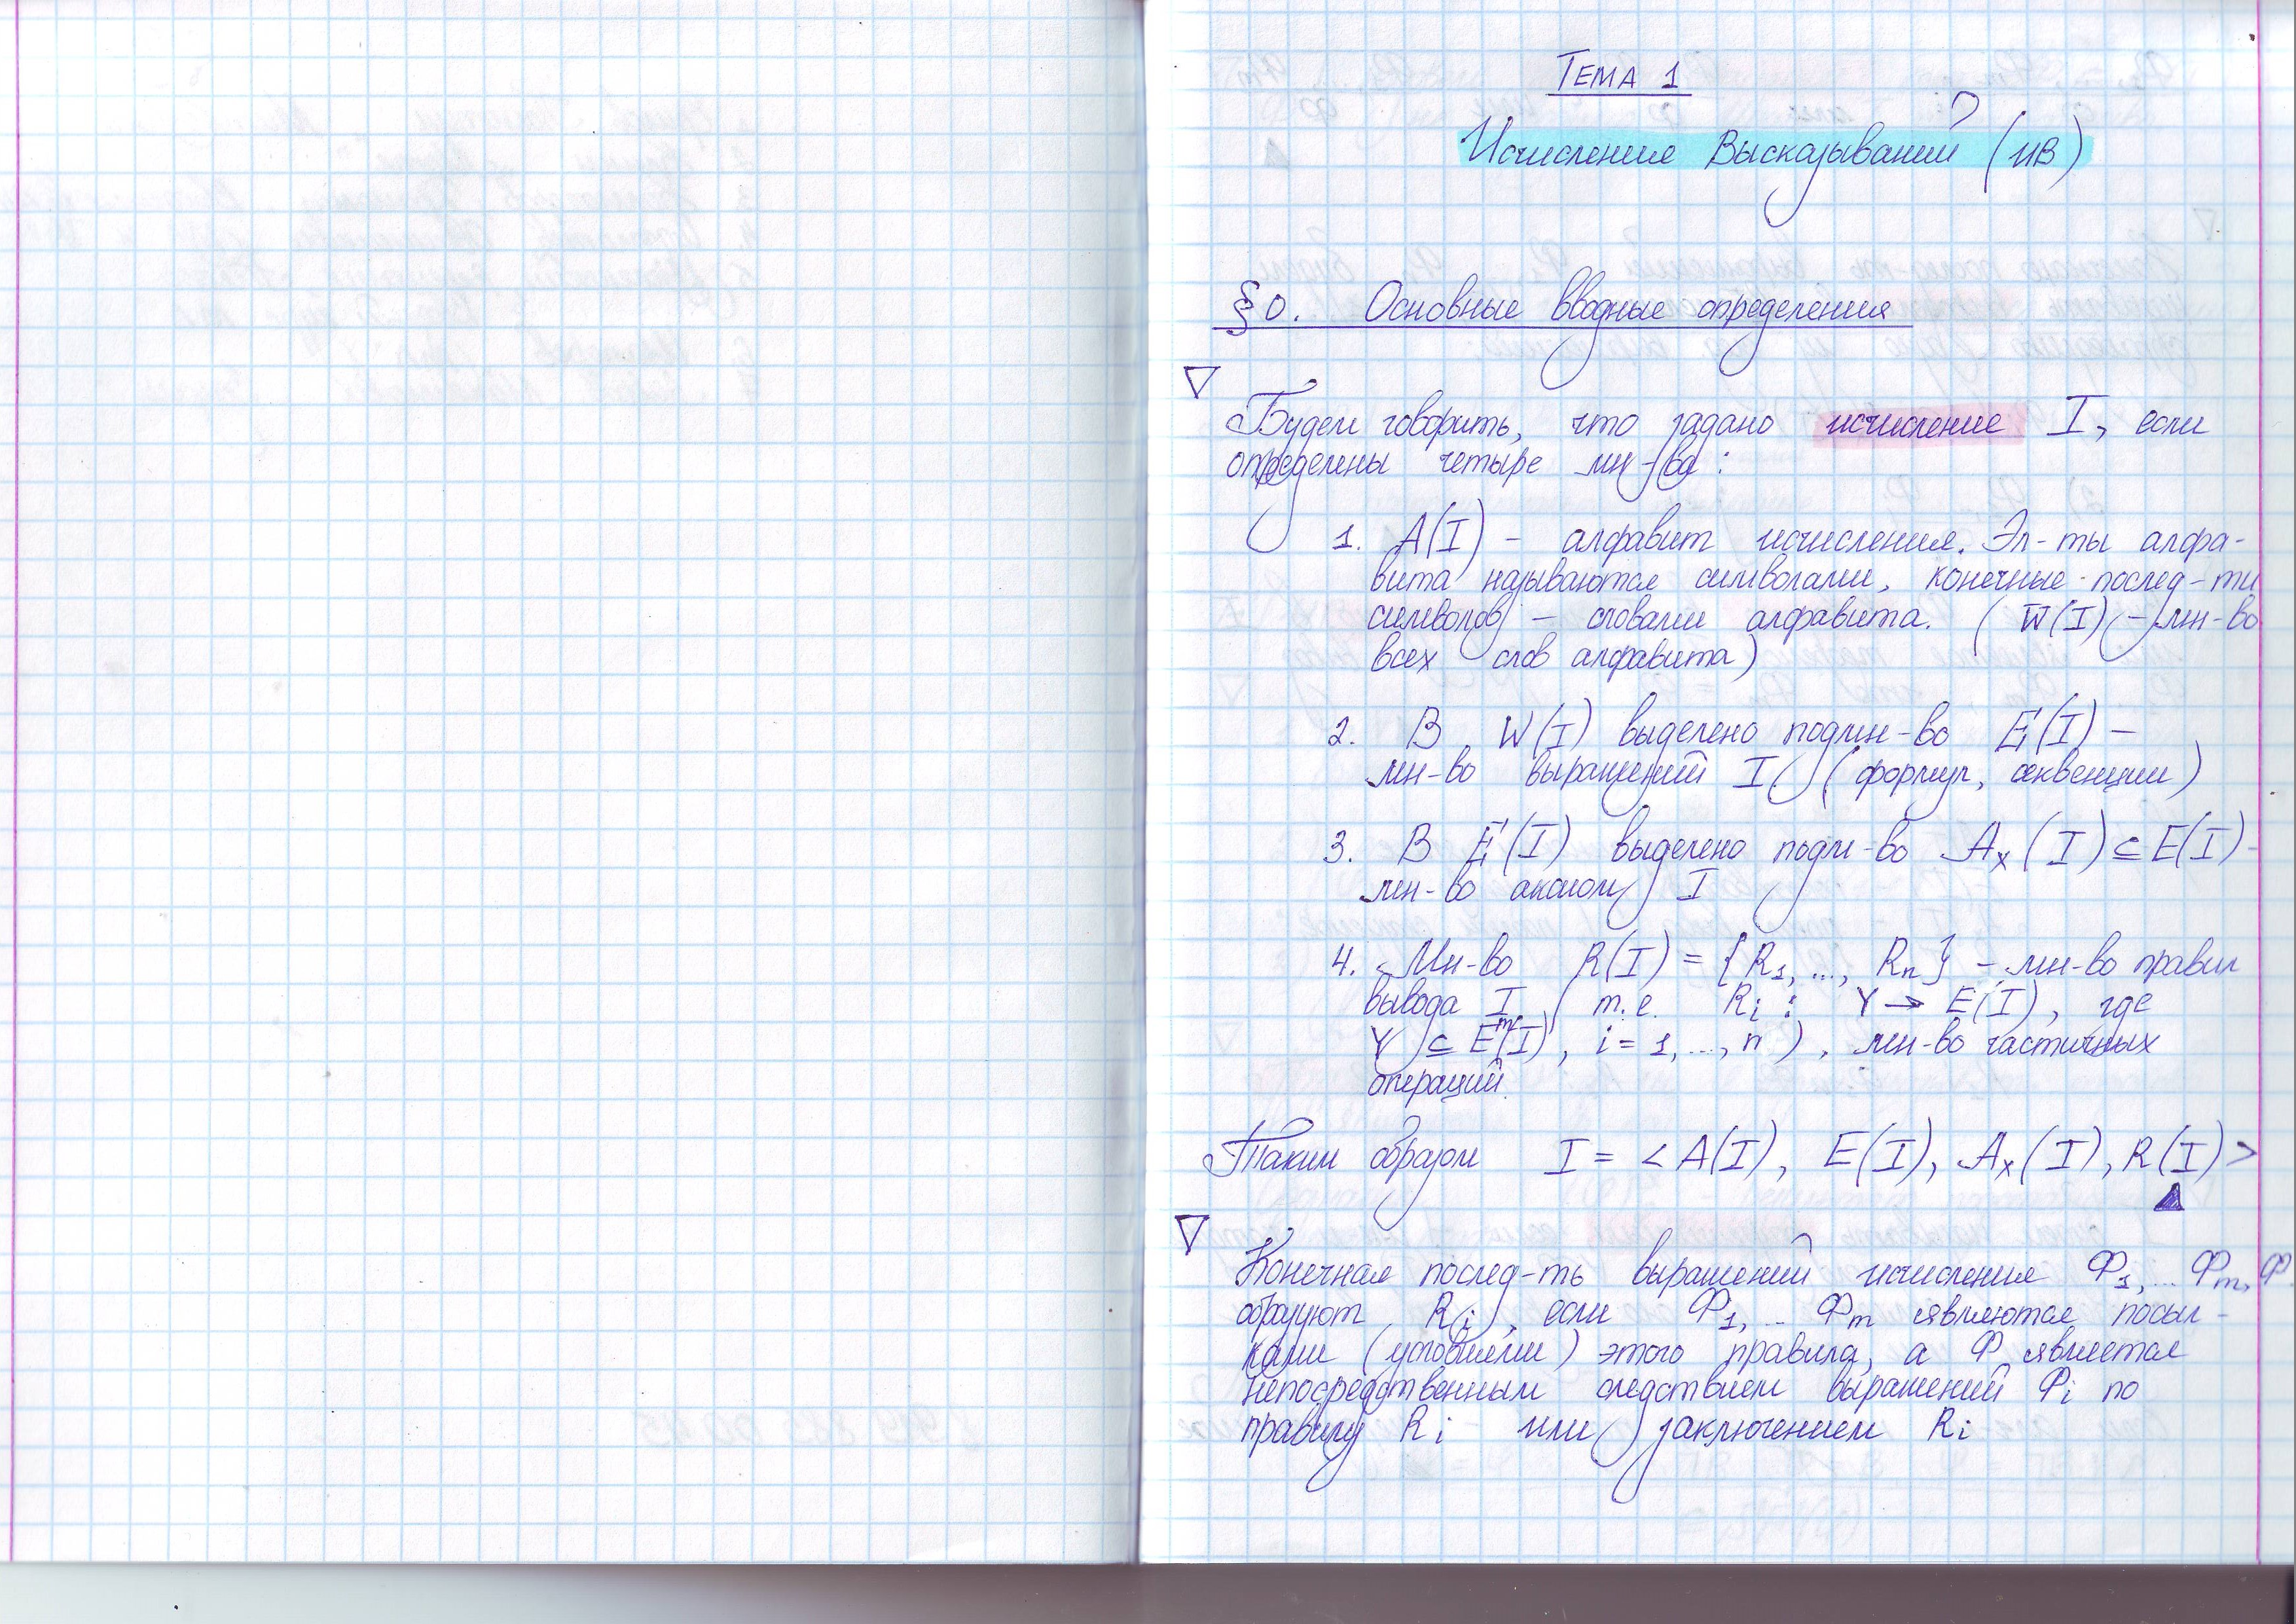 Тема 1
Исчисление Высказываний (ИВ)
§0. Основные вводные определения
▽
Будем говорить, что задано исчисление I, если
определены четыре мн-ва:
1. A(I) – алфавит исчисления. Эл-ты алфа-
вита называются символами, конечные послед-ти
символов – словами алфавита. (W(I) – мн-во
всех слов алфавита)
2. В W(I) выделено подмн-во E(I) –
мн-во выражений I (формул, секвенции)
3. В E(I) выделено подм-во Aₓ(I) ⊆ E(I) -
мн-во аксиом I
4. Мн-во R(I) = {R₁, ..., Rₙ} – мн-во правил
вывода I (т.е. Rᵢ : Y → E(I), где
Y ⊆ Eᵐ(I), i = 1, ..., n), мн-во частичных
операций.
Таким образом I = <A(I), E(I), Aₓ(I), R(I)>
▲
▽
Конечная послед-ть выражений исчисления Ф₁, ... Фₘ, Ф
образуют Rᵢ, если Ф₁, .. Фₘ являются посыл-
ками (условиями) этого правила, а Ф является
непосредственным следствием выражений Фᵢ по
правилу Rᵢ или заключением Rᵢ